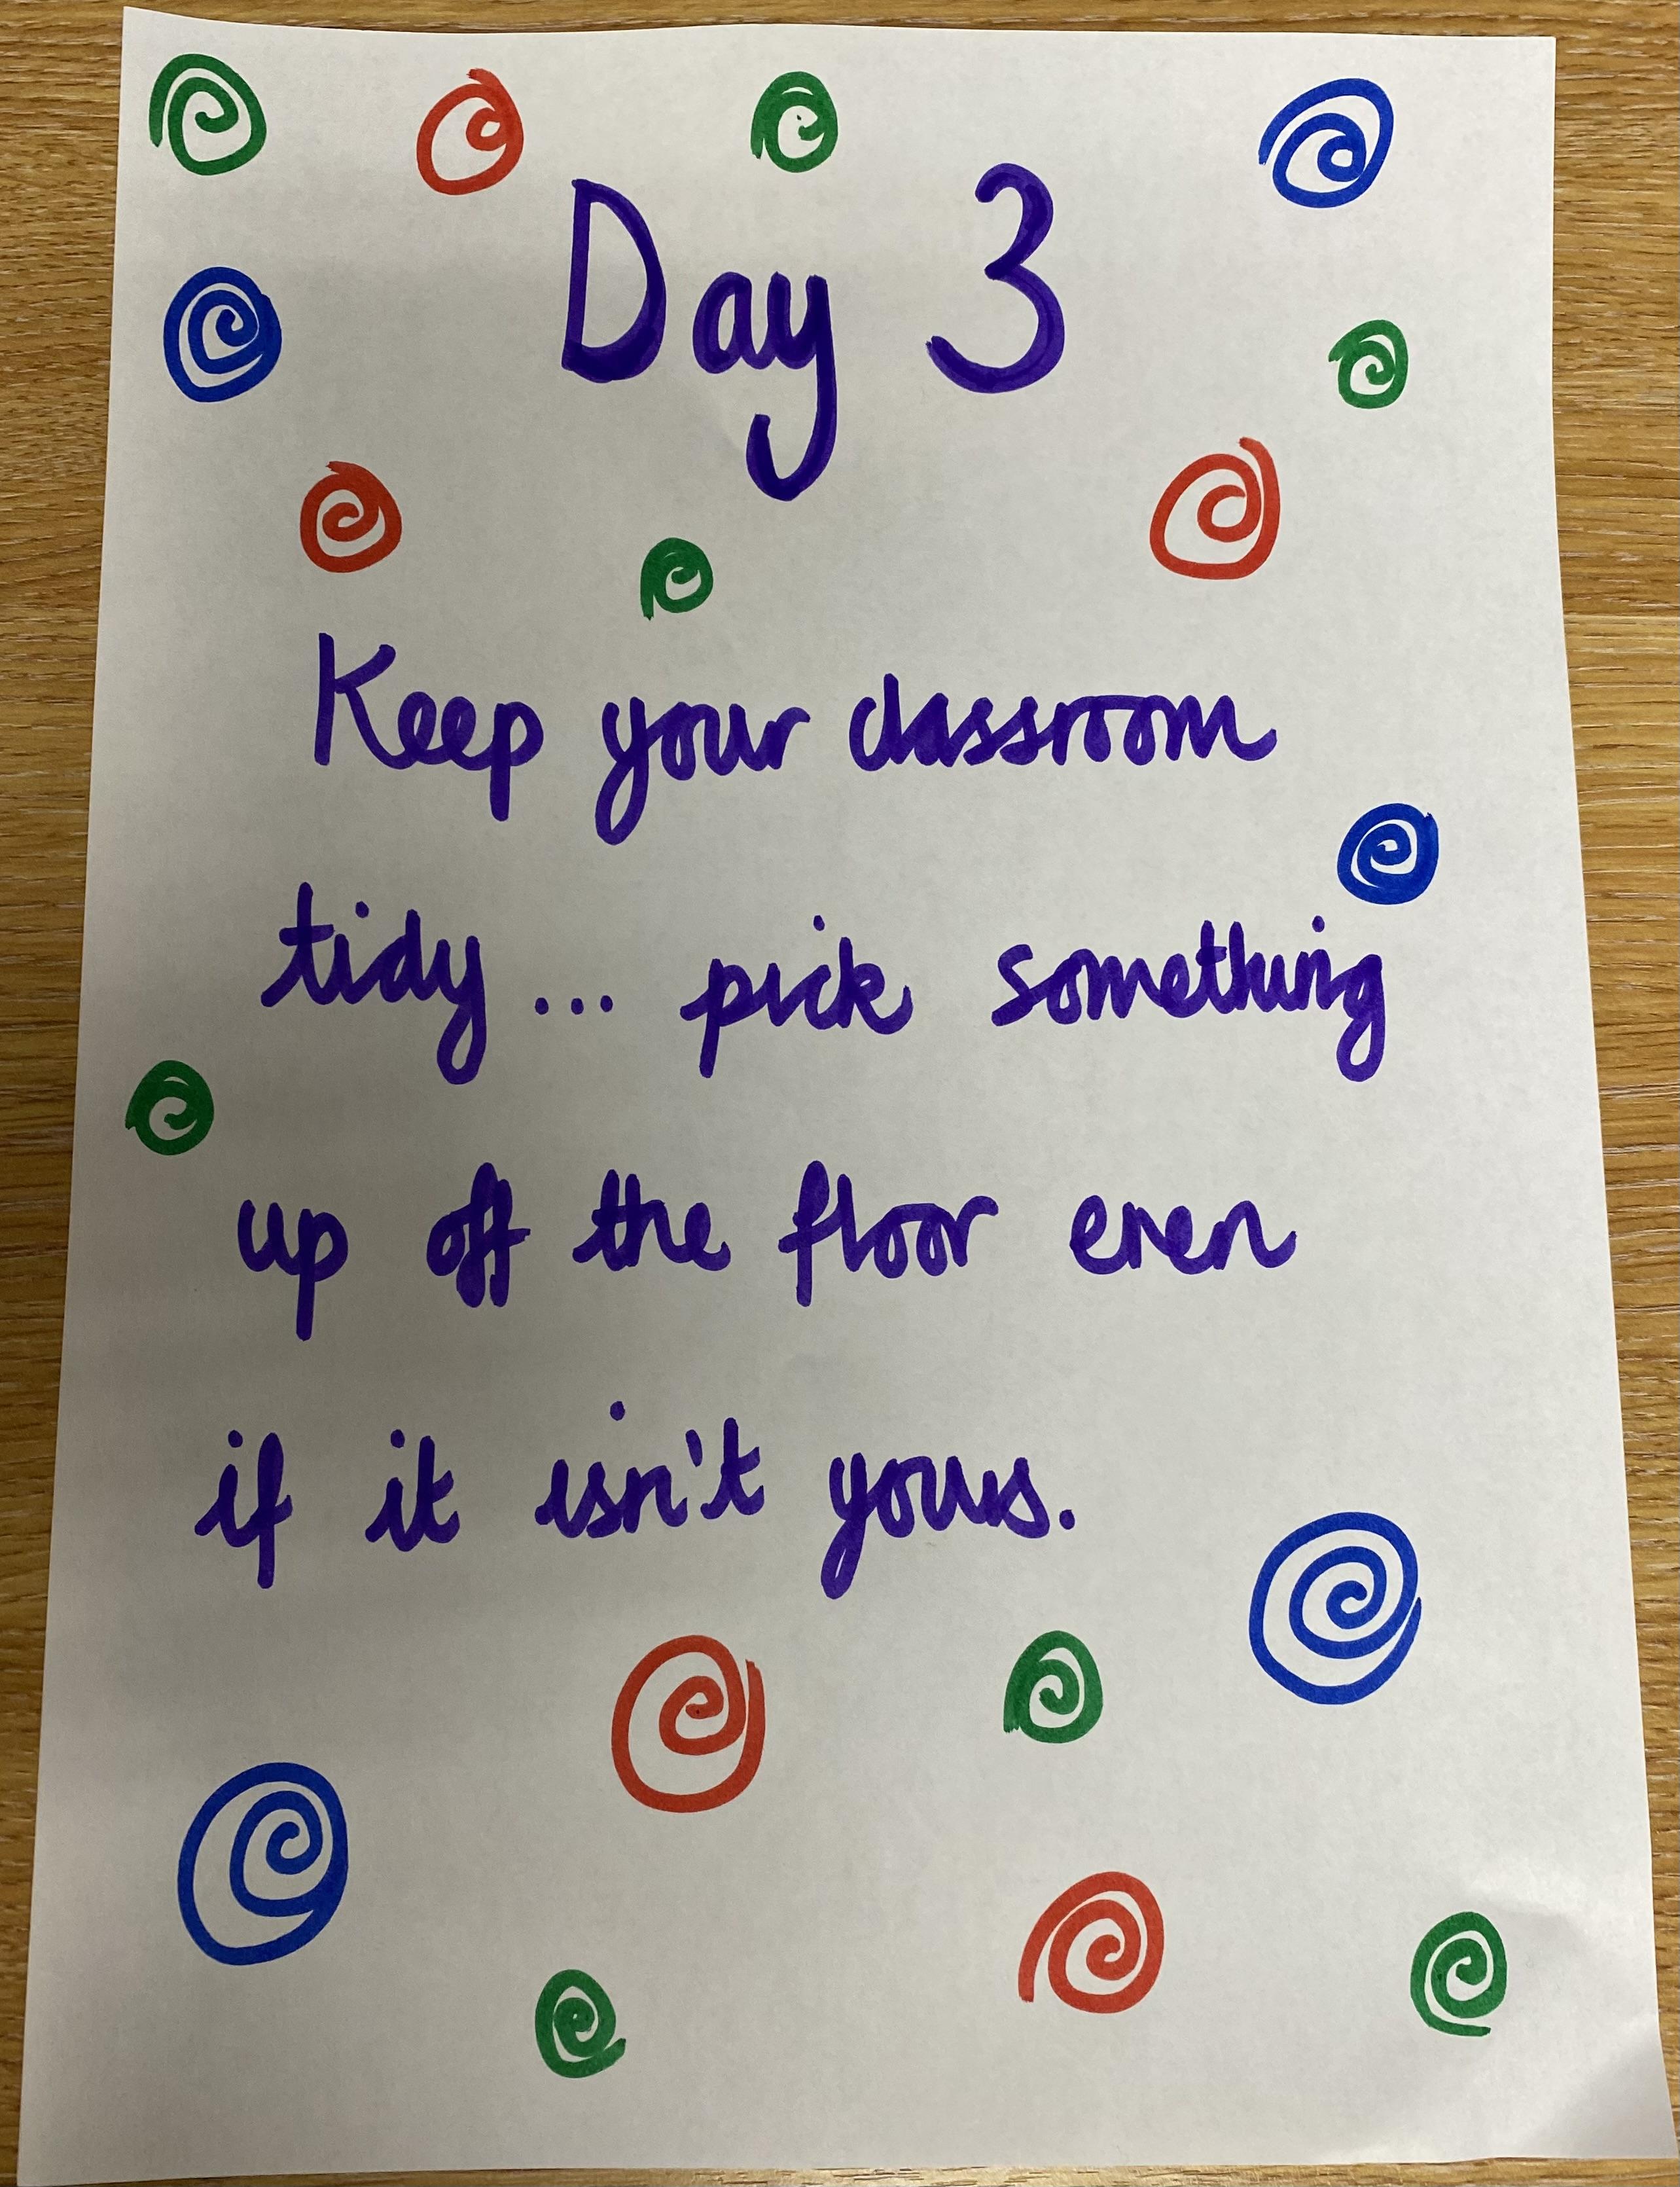 Day 3
Keep your classroom
tidy... pick something
up off the floor even
if it isn't yours.